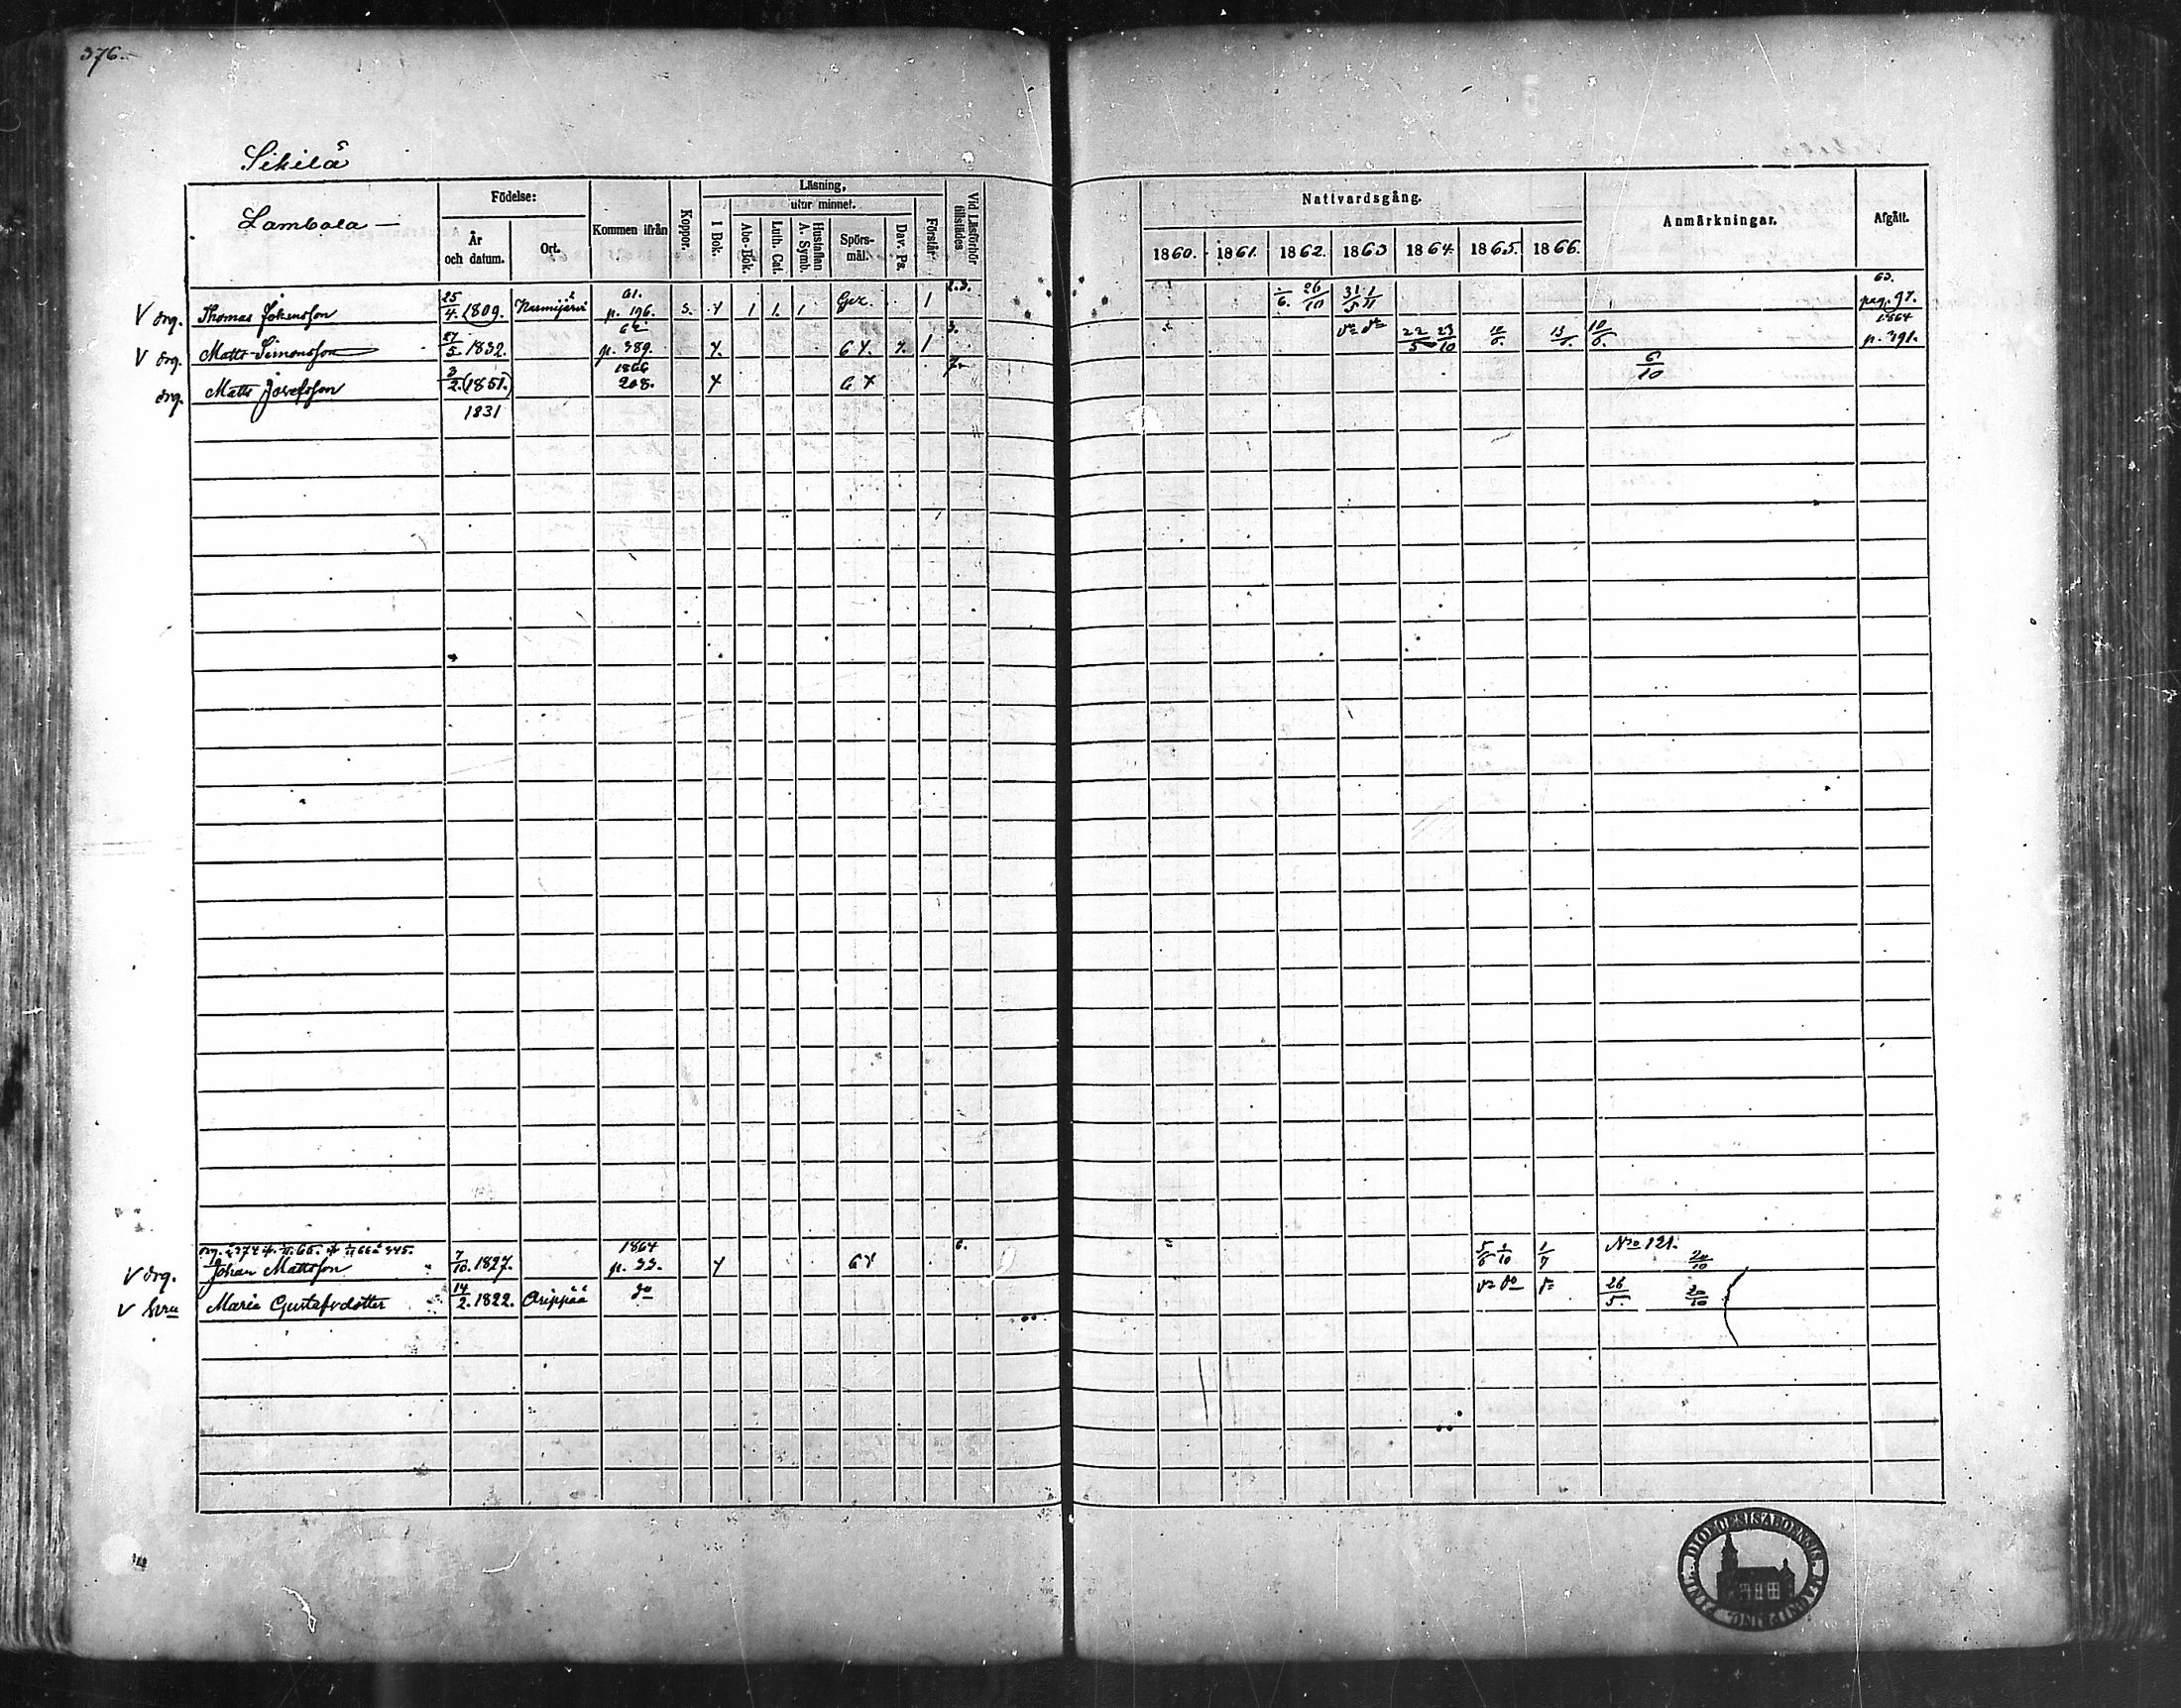 376.
Sikilä
Lambola —
Födelse:
År och datum.
Ort.
Kommen ifrån
Koppor.
Läsning,
I Bok.
utur minnet.
Abc-Bok.
Luth. Cat.
Hustaflan A. Symb.
Spörs-mål.
Dav. Ps.
Förstår
Vid Läsförhör tillstädes
Nattvardsgång.
1860. 1861. 1862. 1863 1864. 1865. 1866.
Anmärkningar.
Afgått.
V drg. Thomas Johansson 25/4 1809. 61. p. 196. 3. Y 1 1. 1 1 2.3. 26/10 31/5 1/11 63. pag. 97.
V drg. Matts Simonsson 27/5 1832. 62. p. 389. Y. G Y. Y. 1 3. 22/5 23/10 10/6. 13/ 10/6. 1864 p. 391.
drg. Matts Josefsson 3/2 (1851.) 1866 208. Y G Y 7. 6/10
1831
V drg. Johan Mattsson 7/10. 1827. 1864 p. 33. Y G Y 6. 5/6 1/10 1/7 No 121. 20/10
V hru Maria Gustafsdotter 14/2. 1822. Orippää do 26/5. 20/10